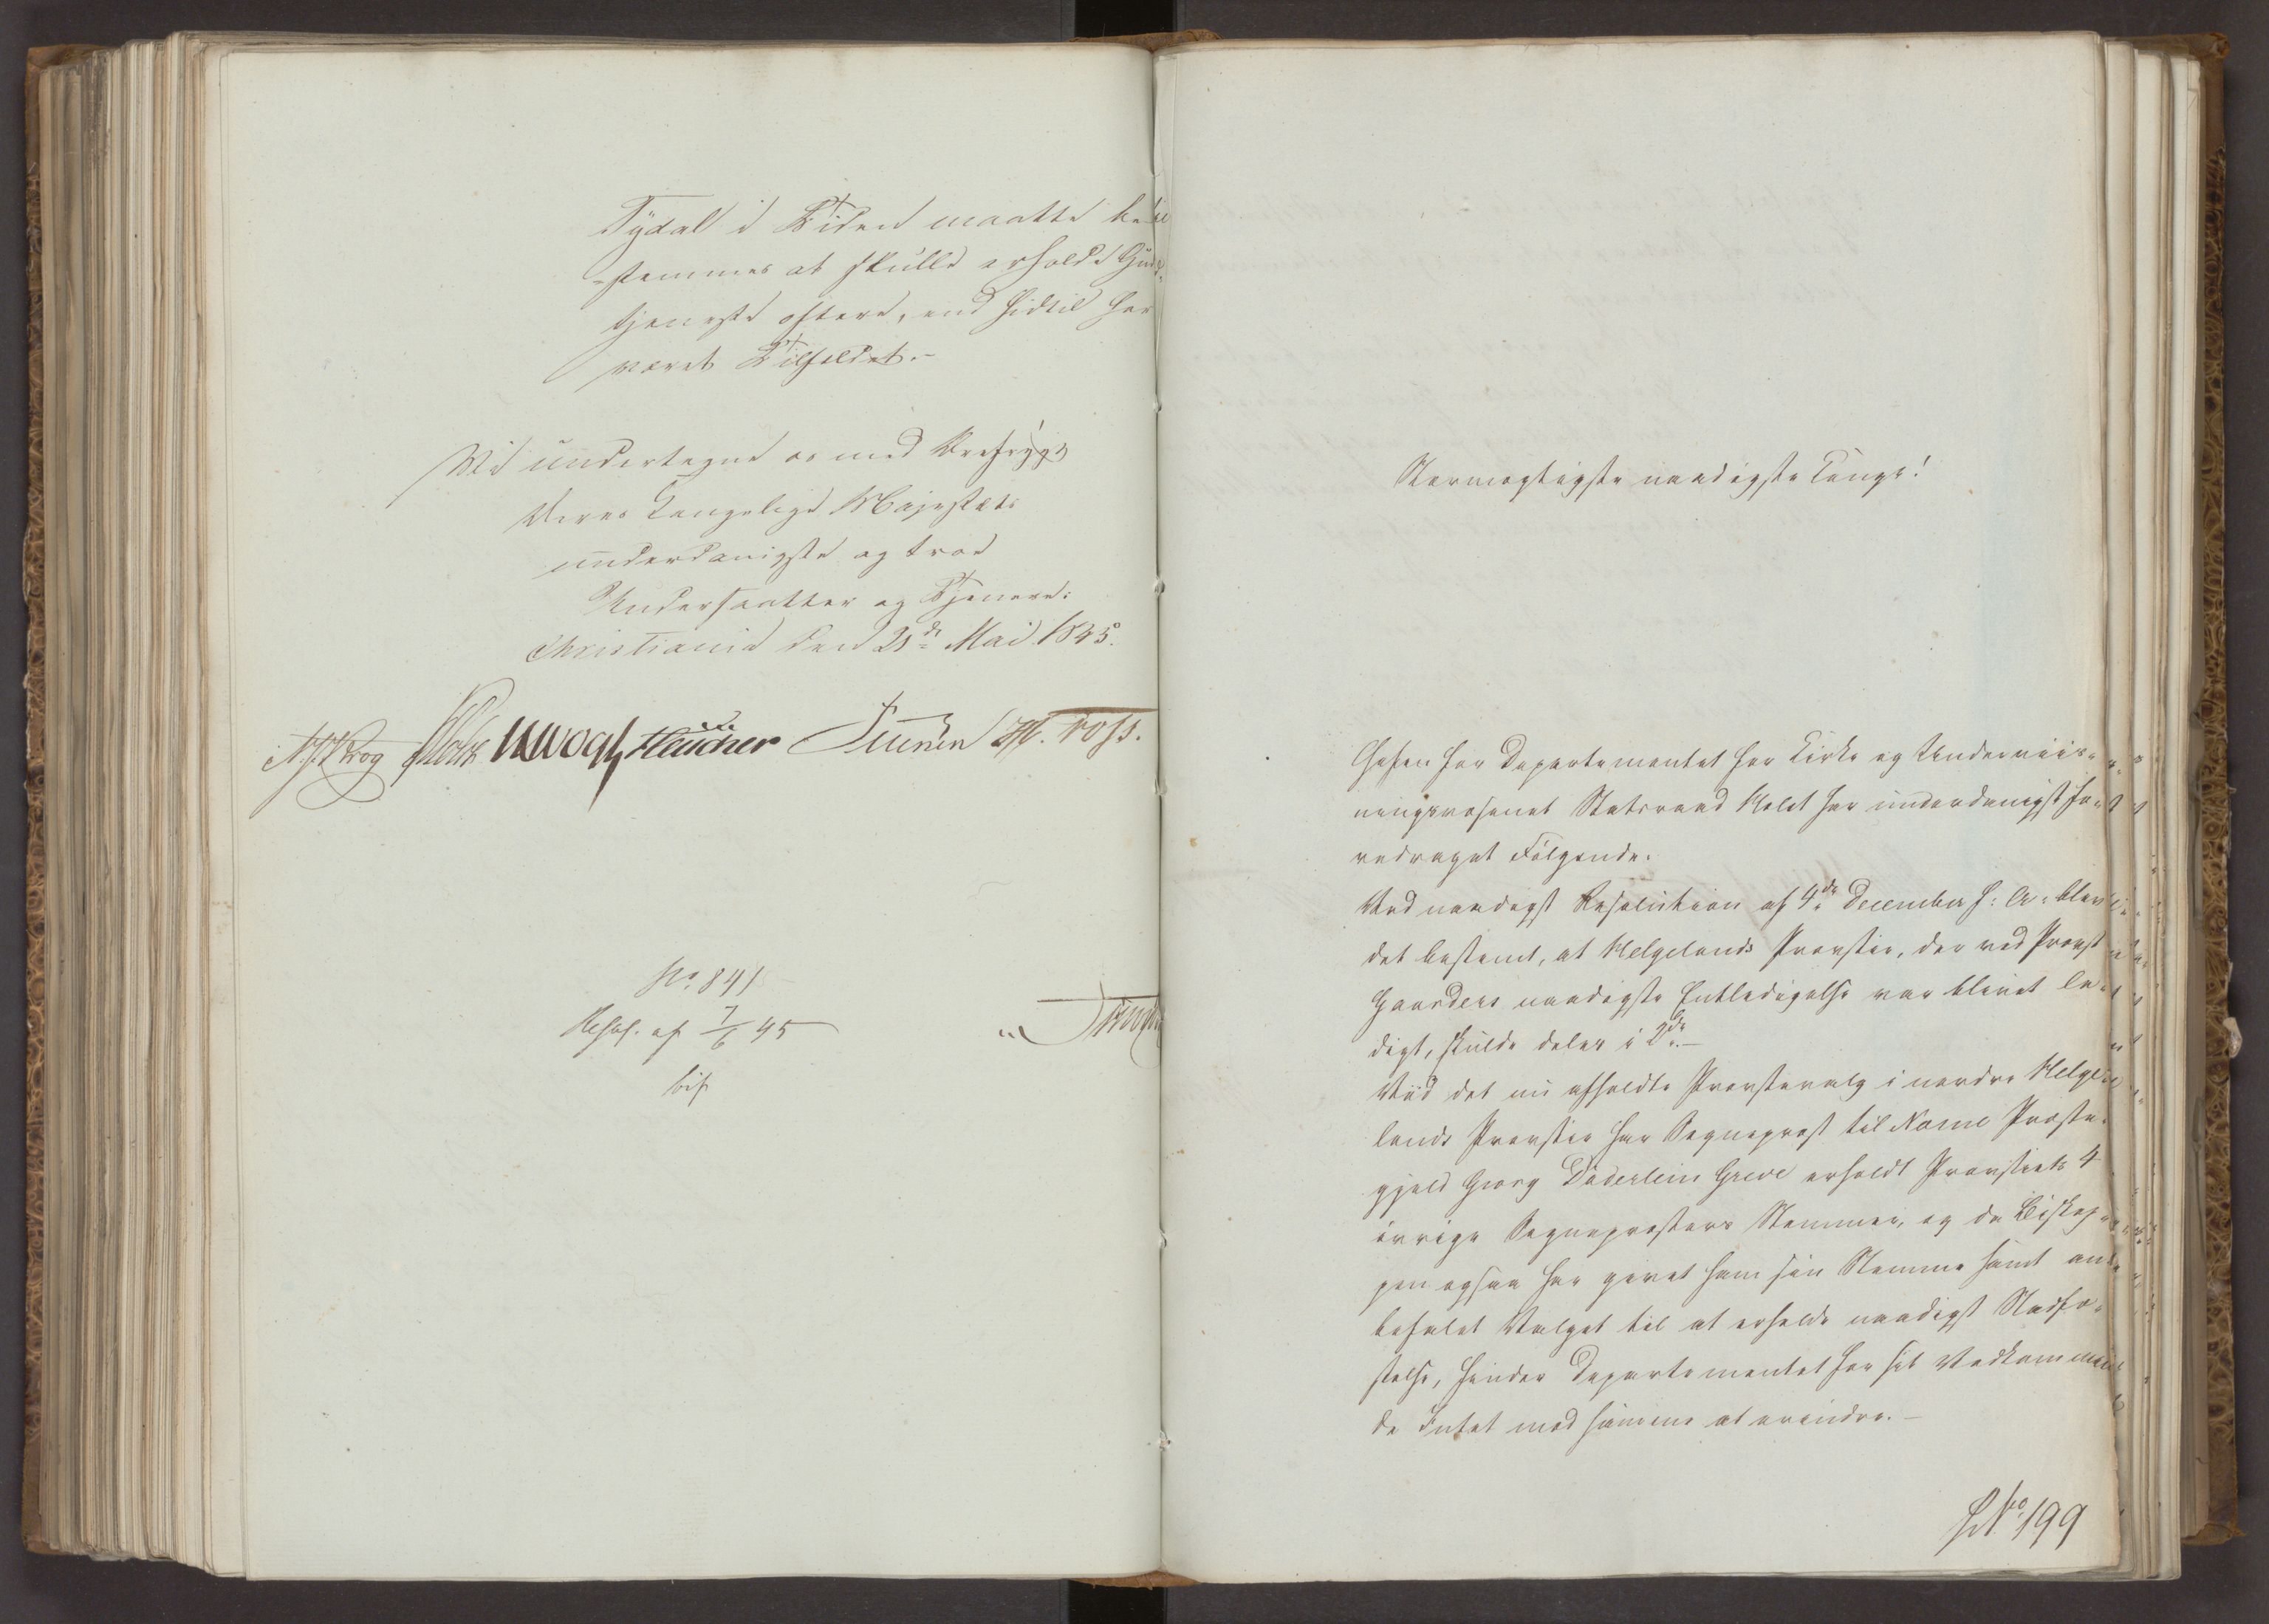 Tydal i Tiden maatte be-
-stemmes at skulle erholde Guds-
tjeneste oftere, end hidtil har
været Tilfældet.-
Vi undertegne os med Ærefrygt
Deres Kongelige Majestæts
underdanigste og troe
Undersaatter og Tjenere:
Christiania den 21de Mai 1845.
N. J. Krog Holst JHVogt Heücher
No 841
Resol. af 7/6 45
bif
Stormægtigste naadigste Konge!
Chefen for Departementet for Kirke og Underviis-
ningsvæsenet Statsraad Holst har underdanigst fo-
redraget Følgende:
Ved naadigst Resolution af 4de December f: A: blev
det bestemt, at Helgelands Provstie, der ved Provst
Gaarders naadigste Entledigelse var blevet le-
digt, skulde deles i 2de.-
Ved det nu afholdte Provstevalg i nordre Helge-
lands Provstie har Sognepræst til Næsne Præste-
gjeld Georg Döderlein Greve erholdt Provstiets 4
övrige Sognepræsters Stemmer, og da Biskop-
pen ogsaa har givet ham sin Stemme samt an-
befalet Valget til at erholde naadigst Stadfæ-
stelse, finder Departementet for sit Vedkommen-
de Intet mod samme at erindre.-
No 199